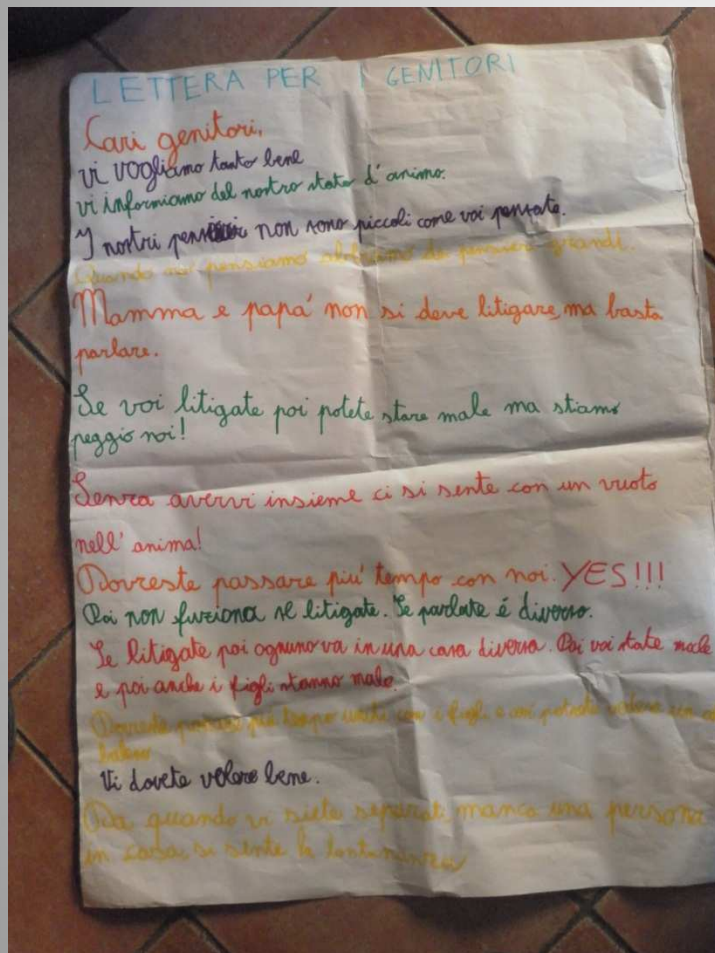 LETTERA PER I GENITORI
Cari genitori,
vi vogliamo tanto bene
vi informiamo del nostro stato d'animo.
I nostri pensieri non sono piccoli come voi pensate.
Quando noi pensiamo abbiamo dei pensieri grandi..
Mamma e papa' non si deve litigare, ma basta
parlare.
Se voi litigate poi potete stare male ma stiamo
peggio noi!
Senza avervi insieme ci si sente con un vuoto
nell'anima!
Dovreste passare piu' tempo con noi. YES!!!
Poi non funziona se litigate. Se parlate é diverso.
Se litigate poi ognuno va in una casa diversa. Poi voi state male
e poi anche i figli stanno male.
Dovreste passare più tempo uniti con i figli e così potrete vedere un
Vi dovete volere bene.
Da quando vi siete separati manca una persona
in casa, si sente la lontananza